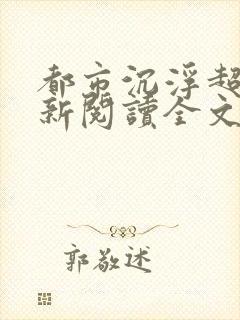 都市沉浮超
新閱讀全文
郭敬述